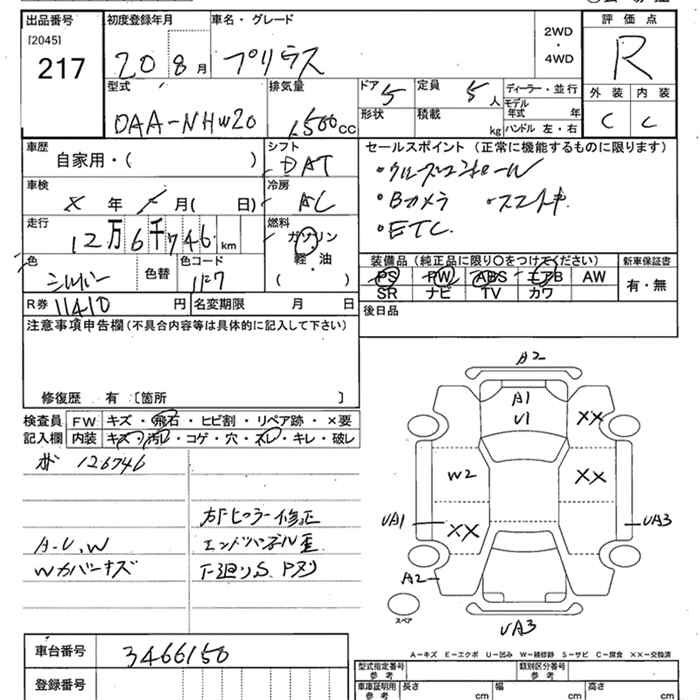 出品番号 初度登録年月 車名・グレード 評価点
[2045]
217
20 8月 プリウス
2WD
・
4WD
R
型式 排気量 ドア 5 定員 5人 ディーラー・並行 外装 内装
DAA-NHW20 1500cc 形状 積載 kg モデル年式 年 C C
ハンドル 左・右
車歴 シフト セールスポイント(正常に機能するものに限ります)
自家用・( ) DAT ・クルーズコントロール
車検 冷房 ・Bカメラ ・スマートキー
X 年 月( 日) AC ・ETC
走行 燃料
12万6千746km ガソリン
軽・油
( )
色 色替 色コード 装備品(純正品に限り○をつけてください) 新車保証書
シルバー 1F7 PS PW ABS エアB AW 有・無
SR ナビ TV カワ
R券 11410円 名変期限 月 日 後日品
注意事項申告欄(不具合内容等は具体的に記入して下さい)
修復歴 有〔箇所 〕
検査員 FW キズ・飛石・ヒビ割・リペア跡・×要
記入欄 内装 キズ・汚レ・コゲ・穴・スレ・キレ・破レ
126746
右Fピラー修正
A.U.W エンドパネル歪
Wカバーキズ 下廻りS.Pヌリ
A2
A1
U1
XX
W2 XX
UA1 XX UA3
A2
スペア
UA3
A-キズ E-エクボ U-凹み W-補修跡 S-サビ C-腐食 XX-交換済
車台番号 3466150
型式指定番号 参考 類別区分番号 参考
登録番号 車庫証明用 参考 長さ cm 幅 cm 高さ cm